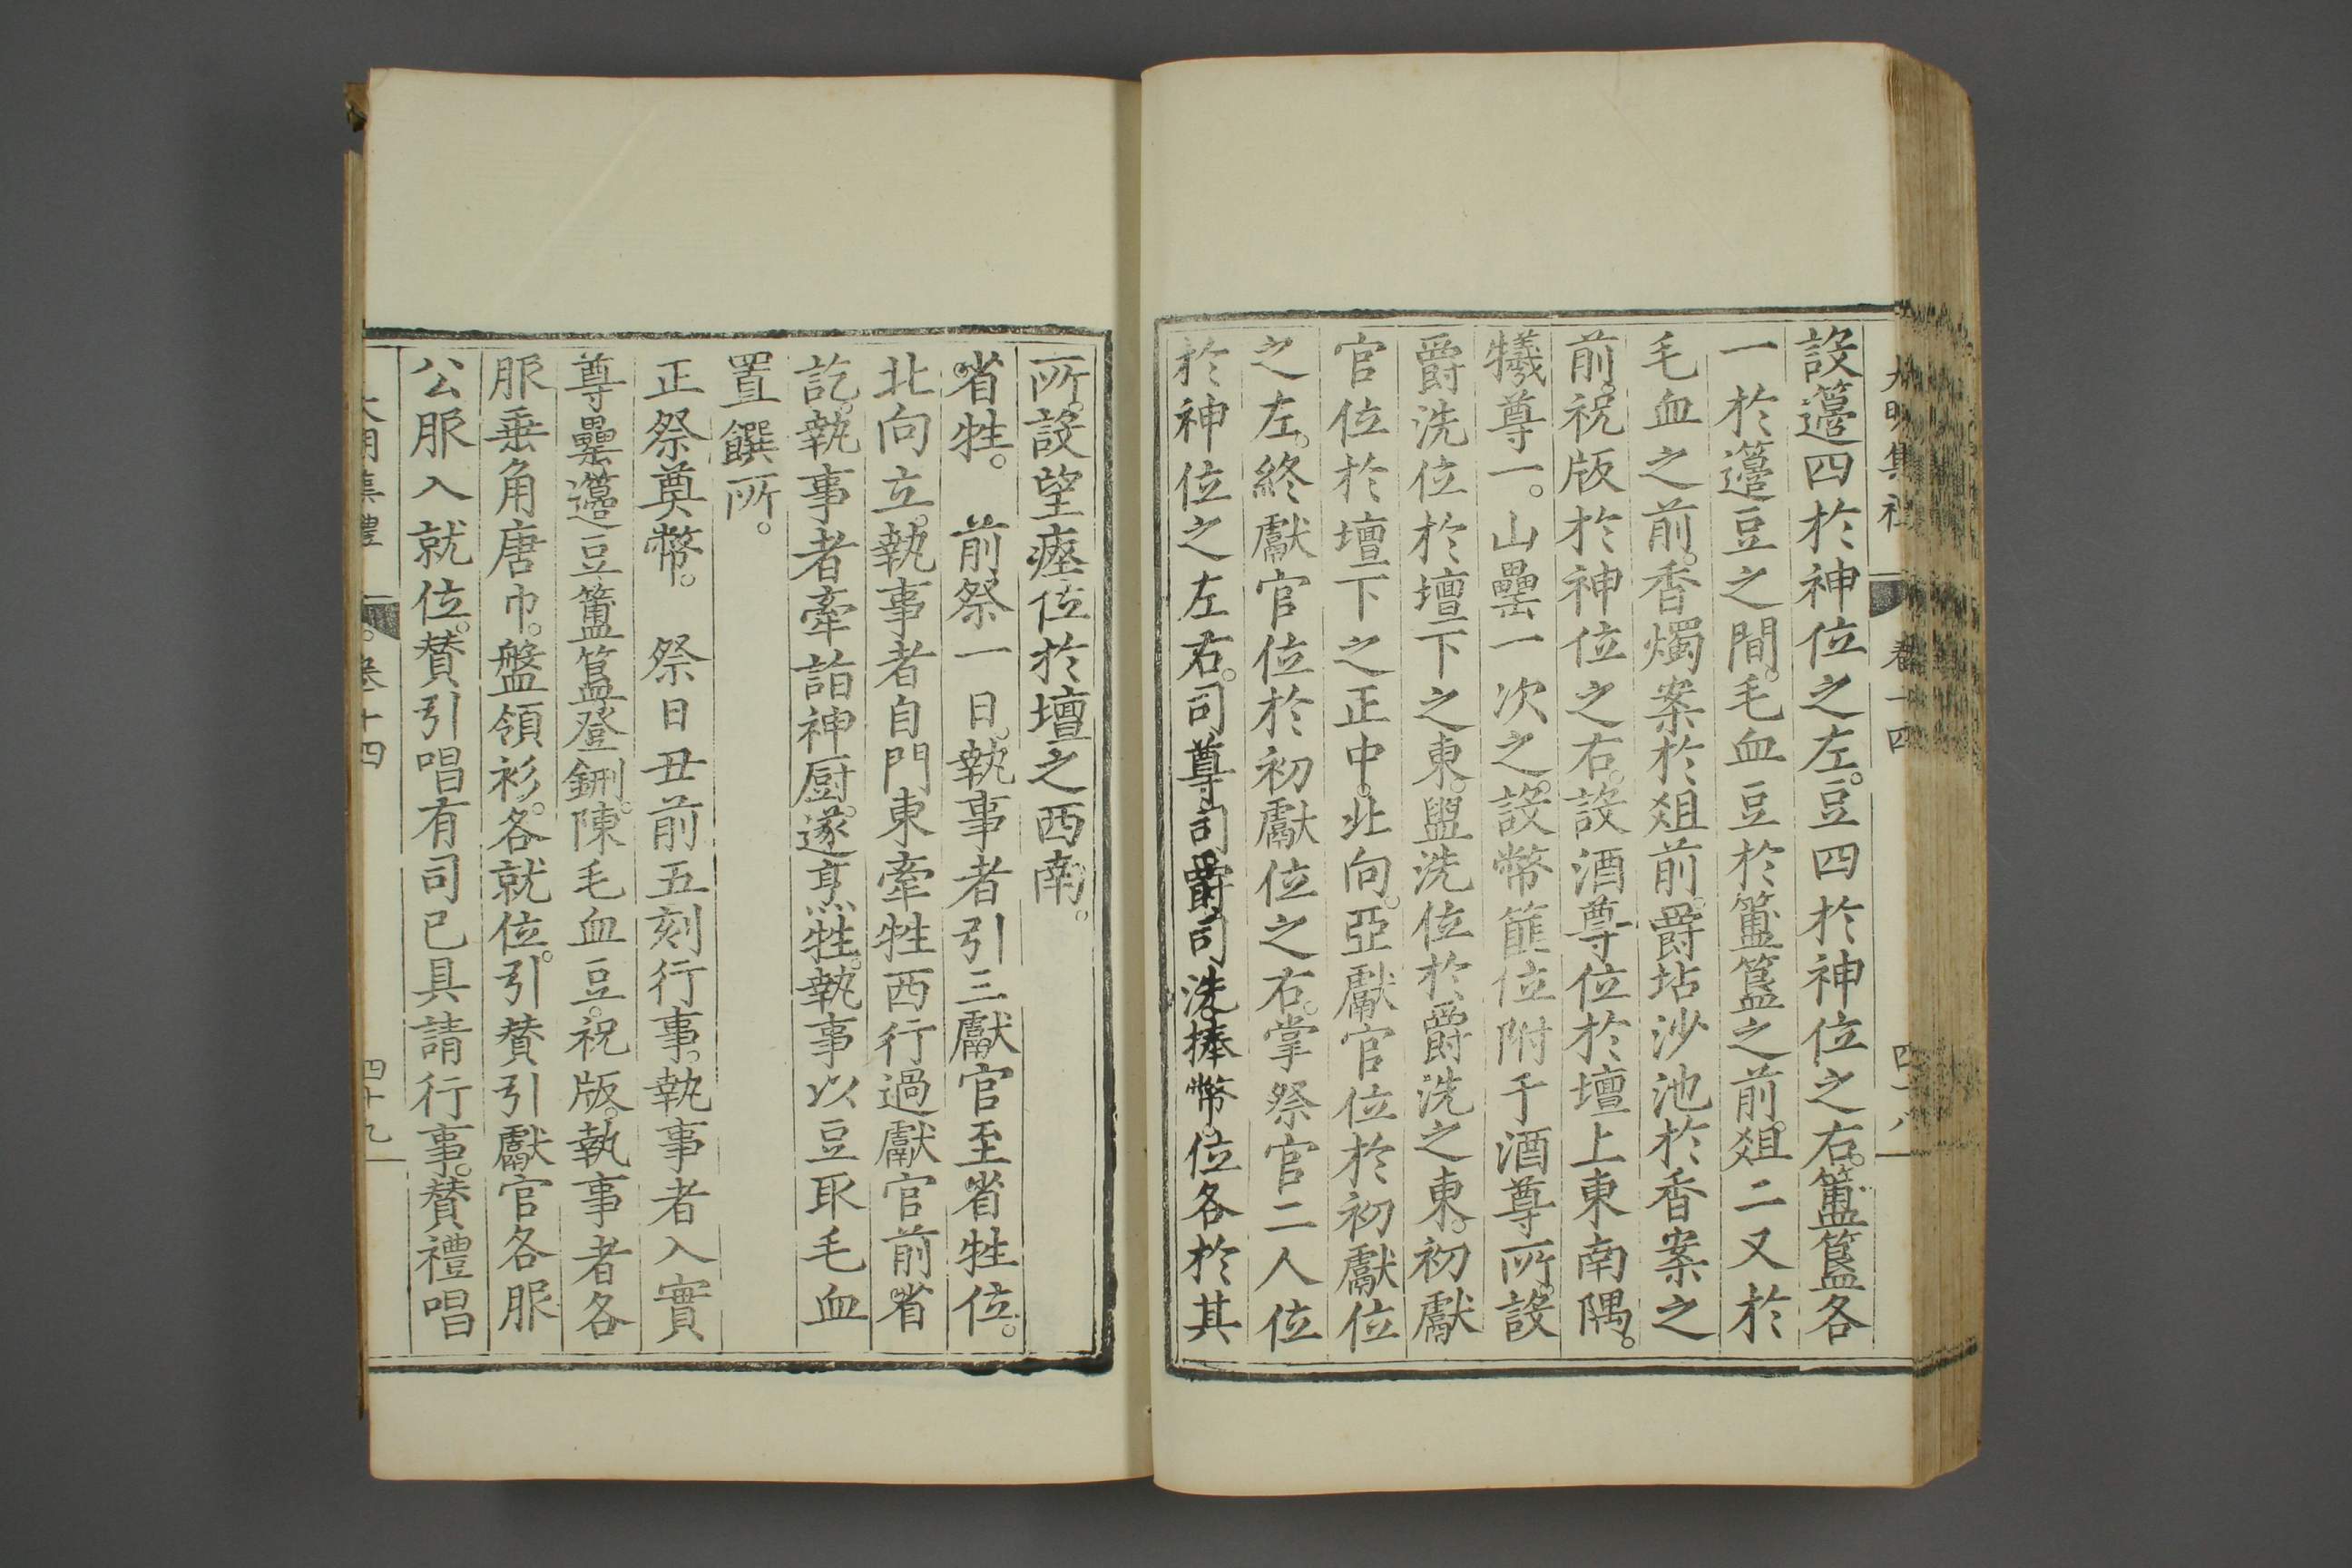 大明集禮 卷十四 四十八
設籩四於神位之左。豆四於神位之右。簠簋各
一於籩豆之間。毛血豆於簠簋之前。俎二又於
毛血之前。香燭案於俎前。爵坫沙池於香案之
前。祝版於神位之右。設酒尊位於壇上東南隅。
犧尊一。山罍一次之。設幣篚位附于酒尊所。設
爵洗位於壇下之東。盥洗位於爵洗之東。初獻
官位於壇下之正中。北向。亞獻官位於初獻位
之左。終獻官位於初獻位之右。掌祭官二人位
於神位之左右。司尊司爵司洗捧幣。位各於其
所。設望瘞位於壇之西南。
省牲。 前祭一日。執事者引三獻官至省牲位。
北向立。執事者自門東牽牲西行過獻官前省
訖。執事者牽詣神厨。遂烹牲。執事以豆取毛血
置饌所。
正祭奠幣。 祭日丑前五刻行事。執事者入實
尊罍籩豆簠簋登鉶。陳毛血豆。祝版。執事者各
服垂角唐巾。盤領衫。各就位。引贊引獻官各服
公服入就位。贊引唱有司已具請行事。贊禮唱
大明集禮 卷十四 四十九